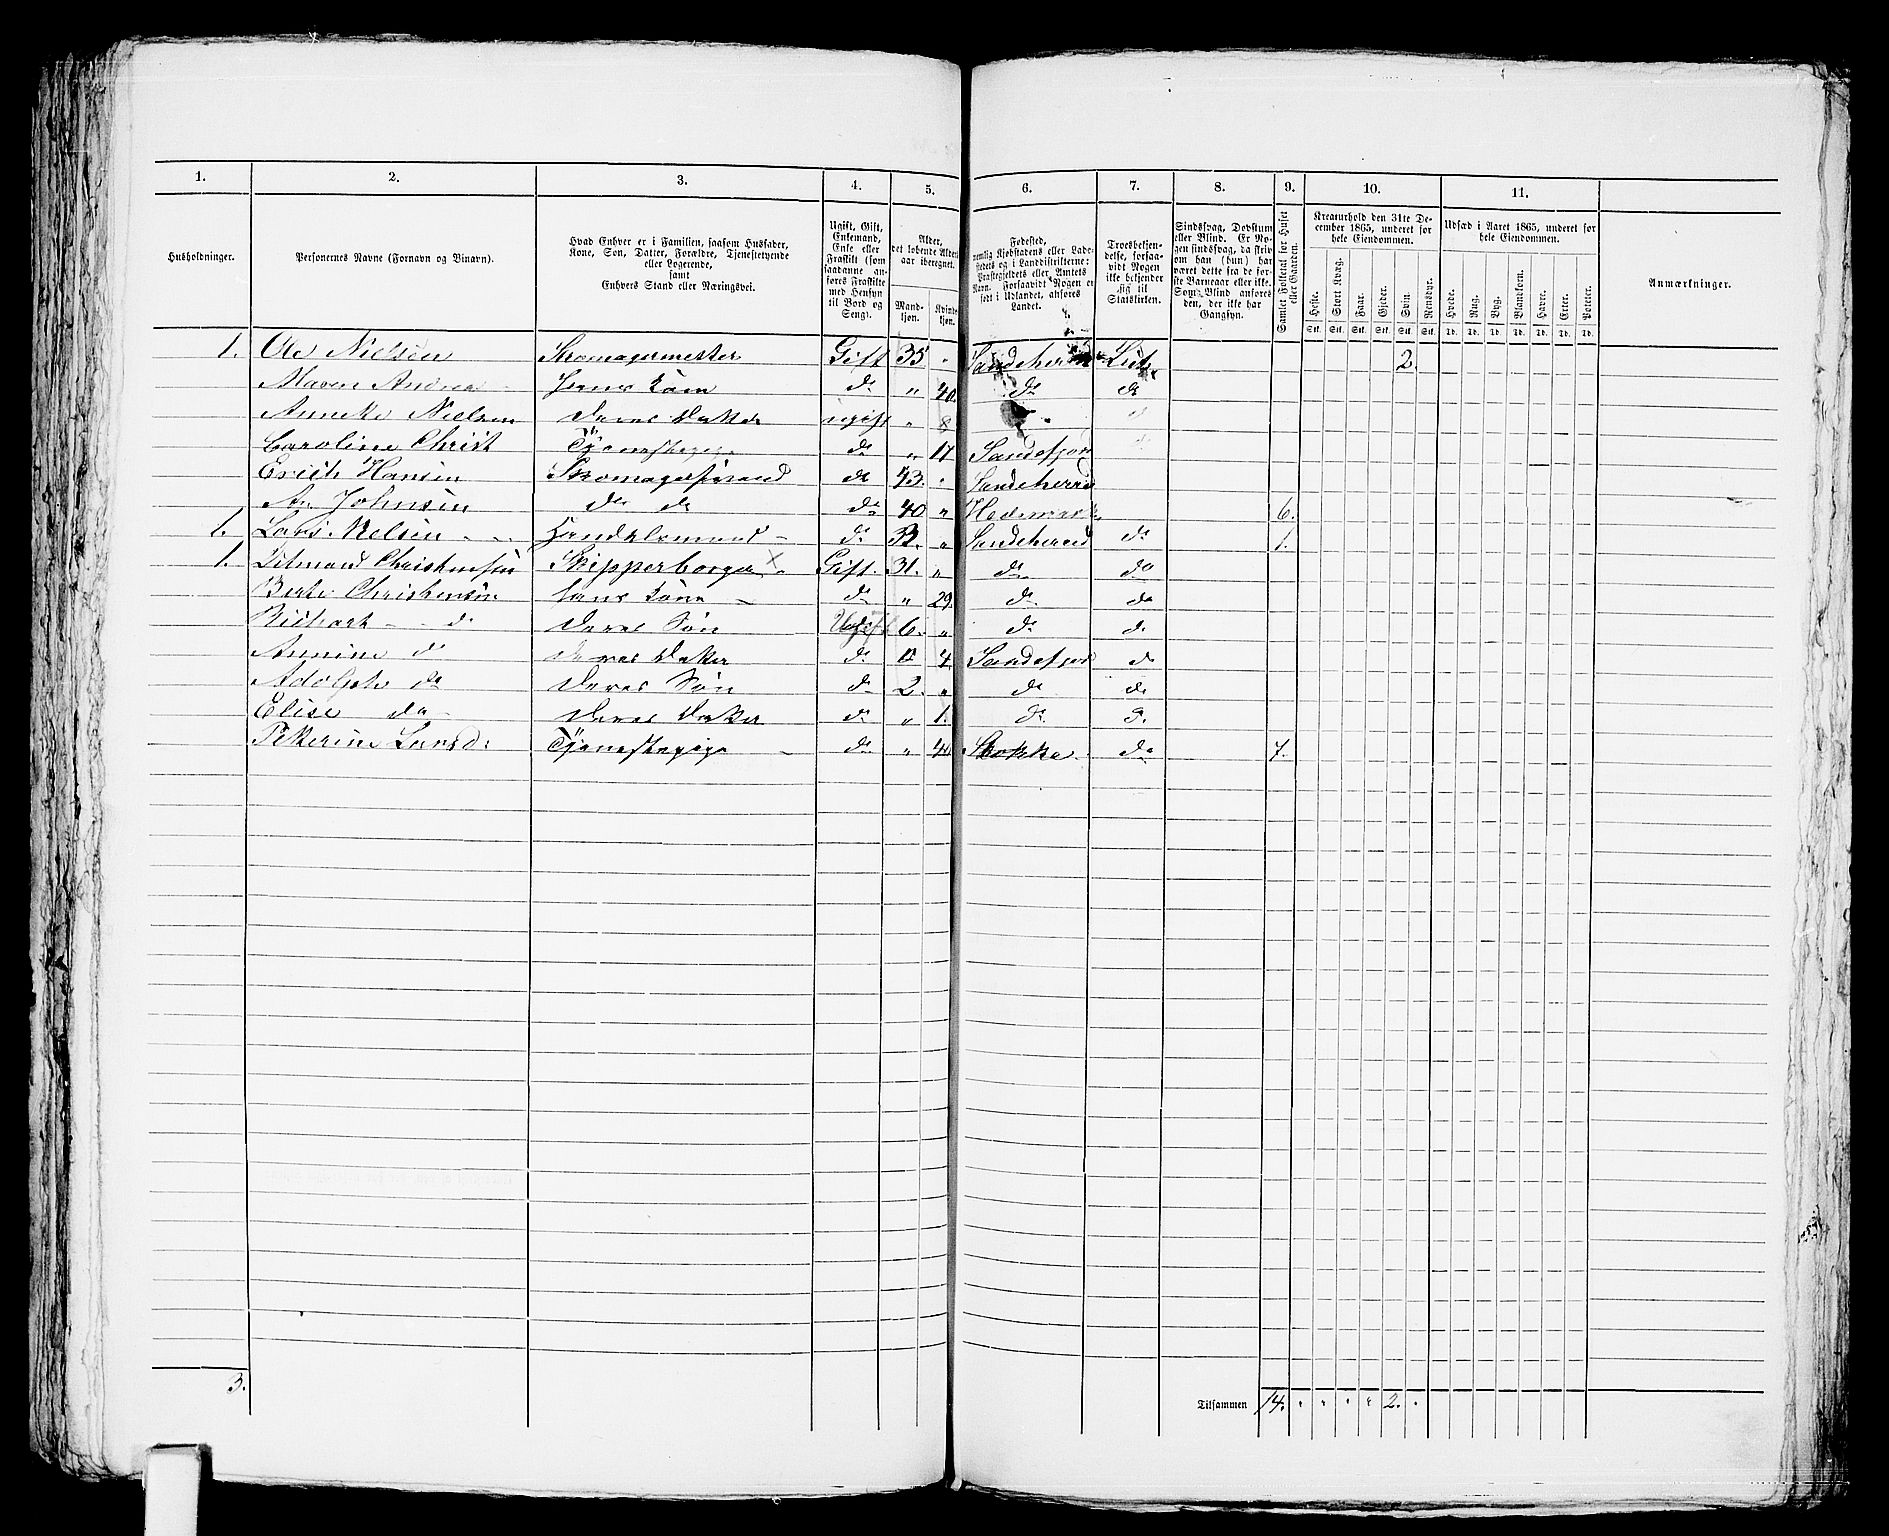 1. 2. 3. 4. 5. 6. 7. 8. 9. 10. 11.
Husholdninger.
Personernes Navne (Fornavn og Binavn).
Hvad Enhver er i Familien, saasom Husfader,
Kone, Søn, Datter, Forældre, Tjenestetyende
eller Logerende,
samt
Enhvers Stand eller Næringsvei.
Ugift, Gift,
Enkemand,
Enke eller
Fraskilt (som
saadanne an-
føres Fraskilte
med Hensyn
til Bord og
Seng).
Alder,
det løbende Alders-
aar iberegnet.
Mand-
kjøn.
Kvinde-
kjøn.
Fødested,
nemlig Kjøbstadens eller Lade-
stedets og i Landdistrikterne:
Præstegjeldets eller Amtets
Navn. Forsaavidt Nogen er
født i Udlandet, anføres
Landet.
Troesbekjen-
delse, forsaa-
vidt Nogen
ikke bekjender
sig til
Statskirken.
Sindssvag, Døvstum
eller Blind. Er No-
gen sindssvag, da skriv
om han (hun) har
været dette fra de før-
ste Barneaar eller ikke.
Som Blind ansøres
den, der ikke har
Gangsyn.
Samlet Folketal for Huset
eller Gaarden.
Kreaturhold den 31te De-
cember 1865, underet for
hele Eiendommen.
Heste. Stort Kvæg. Faar. Gjeder. Svin. Rensdyr.
Stk. Stk. Stk. Stk. Stk. Stk.
Udsæd i Aaret 1865, underet for
hele Eiendommen.
Hvede. Rug. Byg. Blandkorn. Havre. Erter. Poteter.
Td. Td. Td. Td. Td. Td. Td.
Anmærkninger.
1. Ole Nielsen Skomagermester Gift 35 " Sandeherred Lut. 2.
Maren Andrea Hans Kone do " 40. do do
Anneke Nielsen Deres Datter ugift " 8
Caroline Christ Tjenestepige do " 17 Sandefjord
Erich Hansen Skomagersvend do 43. " Sandeherred
An. Johnsen do do do 40 " Hedemark 6.
1. Lars Nielsen Handelsmand do 33. " Sandeherred do 1.
1. Ditmand Christensen Skipperborger Gift. 31. " do do
Berte Christensen hans Kone do " 29. do do
Richart do Deres Søn Ugift 6. " do do
Annine do Deres Datter do " 4 Sandefjord do
Adolph do Deres Søn do 2. " do do
Elise do Deres Datter do " 1. do do
Petterine Larsd: Tjenestepige do " 40 Stokke do 7.
3. Tilsammen 14. " " " " 2. "